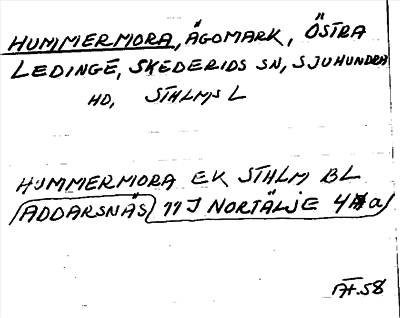 HUMMERMORA, ÄGOMARK, ÖSTRA
LEDINGE, SKEDERIDS SN, SJUHUNDRA
HD, STHLMS L
HUMMERMORA EK STHLM BL
ADDARSNÄS 11 J NORTÄLJE 4 a
AF.58